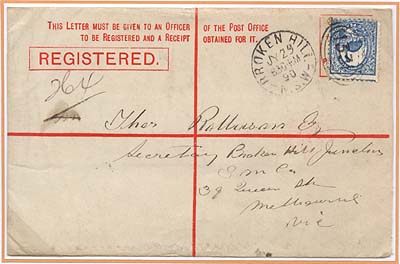 THIS LETTER MUST BE GIVEN TO AN OFFICER OF THE POST OFFICE
TO BE REGISTERED AND A RECEIPT OBTAINED FOR IT.
REGISTERED.
BROKEN HILL
JY 28
90
N.S.W
264
Thos Esq
Secretary Broken Hill Junction
S M Co
39 Queen St
Melbourne
Vic